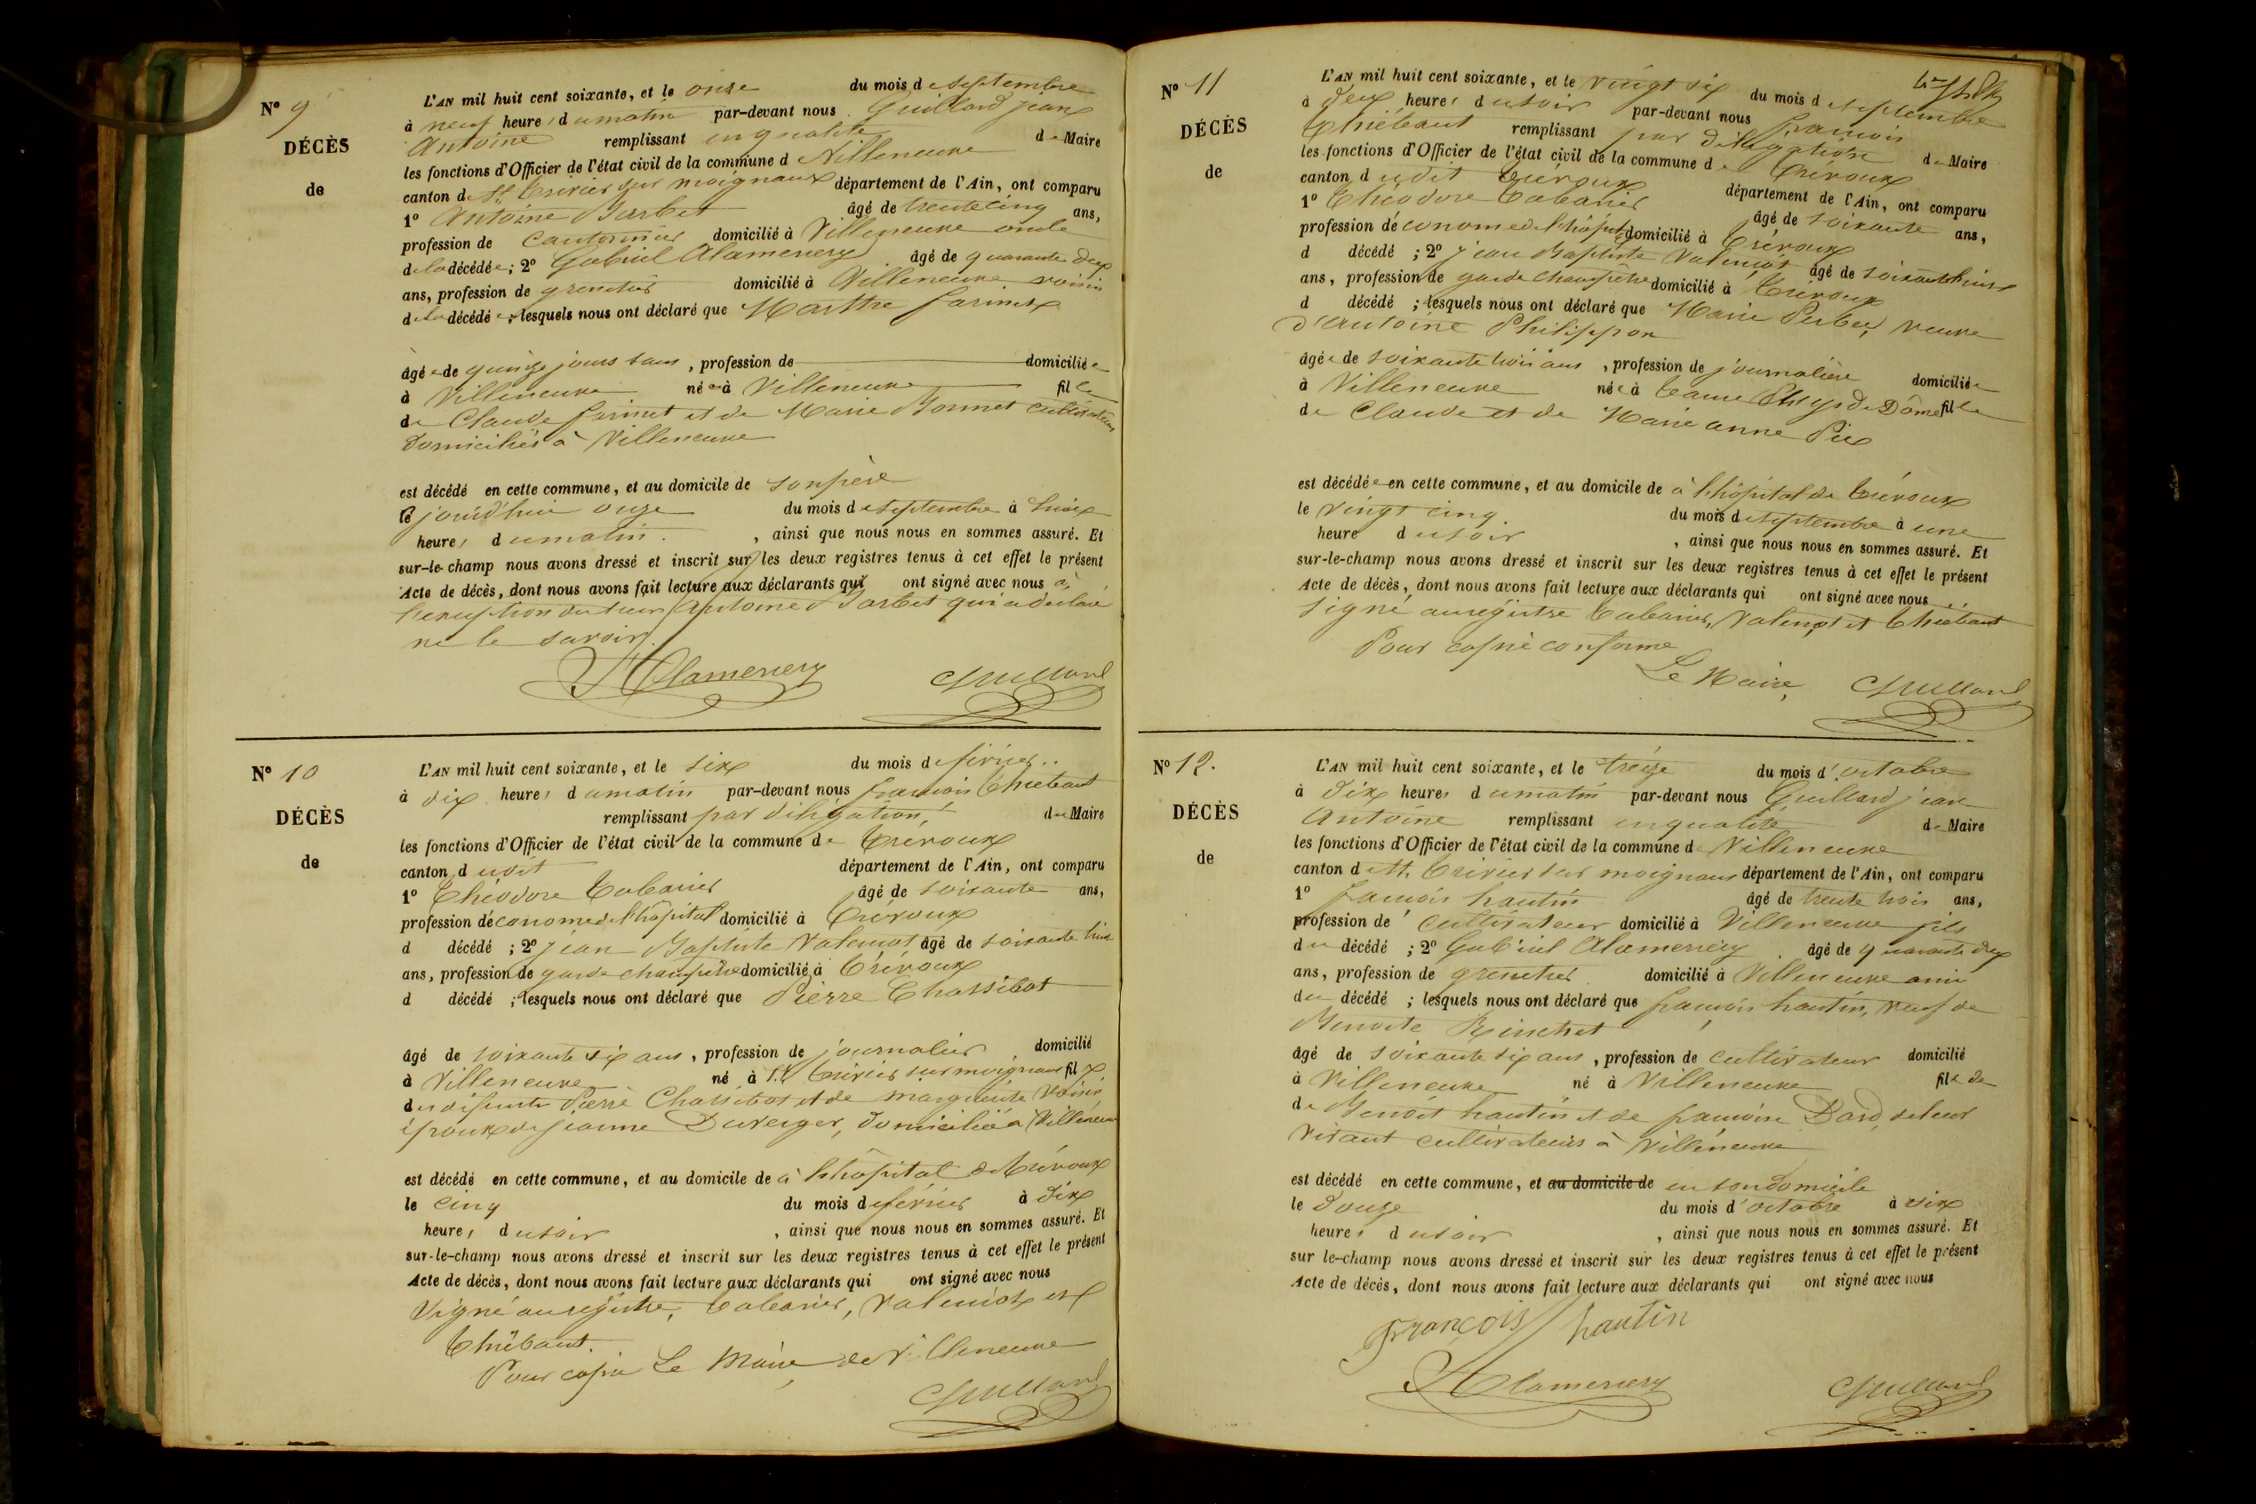 N° 9
DÉCÈS
de
L'AN mil huit cent soixante, et le onze du mois de septembre
à neuf heures du matin par-devant nous Guillard jean
Antoine remplissant en qualité de Maire
les fonctions d'Officier de l'état civil de la commune de Villeneuve
canton de St Trivier sur moignans département de l'Ain, ont comparu
1° Antoine Barbet âgé de trente cinq ans,
profession de cantonnier domicilié à Villeneuve oncle
de la décédée ; 2° Gabriel Alamercery âgé de quarante deux
ans, profession de grenetier domicilié à Villeneuve voisin
de la décédée ; lesquels nous ont déclaré que Marthe farinet
âgée de quinze jours sans , profession de domiciliée
à Villeneuve née à Villeneuve fille
de Claude farinet et de Marie Bonnet cultivateurs
domiciliés à Villeneuve
est décédé en cette commune, et au domicile de son père
le jourd'hui onze du mois de septembre à huit
heures du matin. , ainsi que nous nous en sommes assuré. Et
sur-le-champ nous avons dressé et inscrit sur les deux registres tenus à cet effet le présent
Acte de décès, dont nous avons fait lecture aux déclarants qui ont signé avec nous à
l'exception du sieur Antoine Barbet qui a déclaré
ne le savoir.
Alamercery Guillard
N° 10
DÉCÈS
de
L'AN mil huit cent soixante, et le six du mois de février
à dix heures du matin par-devant nous françois Thiébaut
remplissant par délégation, de Maire
les fonctions d'Officier de l'état civil de la commune de Trévoux
canton dudit département de l'Ain, ont comparu
1° Théodore Cabanier âgé de soixante ans,
profession d'économe de l'hôpital domicilié à Trévoux
d décédé ; 2° jean Baptiste Valençot âgé de soixante huit
ans, profession de garde champêtre domicilié à Trévoux
d décédé ; lesquels nous ont déclaré que Pierre Chassibot
âgé de soixante six ans , profession de journalier domicilié
à Villeneuve né à St Trivier sur moignans fils
des défunts Pierre Chassibot et de marguerite Voisin
époux de jeanne Duverger, domiciliée à Villeneuve
est décédé en cette commune, et au domicile de à l'hôpital de Trévoux
le cinq du mois de février à dix
heures du soir , ainsi que nous nous en sommes assuré. Et
sur-le-champ nous avons dressé et inscrit sur les deux registres tenus à cet effet le présent
Acte de décès, dont nous avons fait lecture aux déclarants qui ont signé avec nous
Signé au registre, Cabanier, Valençot et
Thiébaut.
Pour copie Le Maire de Villeneuve
Guillard
N° 11
DÉCÈS
de
L'AN mil huit cent soixante, et le vingt six du mois de septembre
à deux heures du soir par-devant nous françois
Thiébaut remplissant par délégation de Maire
les fonctions d'Officier de l'état civil de la commune de Trévoux
canton dudit Trévoux département de l'Ain, ont comparu
1° Théodore Cabanier âgé de soixante ans,
profession d'économe de l'hôpital domicilié à Trévoux
d décédé ; 2° jean Baptiste Valençot âgé de soixante huit
ans, profession de garde champêtre domicilié à Trévoux
d décédé ; lesquels nous ont déclaré que Marie Perber, veuve
d'antoine Philippon
âgée de soixante trois ans , profession de journalière domiciliée
à Villeneuve née à (Puy de Dôme) fille
de Claude et de Marie anne Pie
est décédée en cette commune, et au domicile de à l'hôpital de Trévoux
le vingt cinq du mois de septembre à une
heure du soir , ainsi que nous nous en sommes assuré. Et
sur-le-champ nous avons dressé et inscrit sur les deux registres tenus à cet effet le présent
Acte de décès, dont nous avons fait lecture aux déclarants qui ont signé avec nous
Signé au registre Cabanier, Valençot et Thiébaut
Pour copie conforme
Le Maire, Guillard
N° 12.
DÉCÈS
de
L'AN mil huit cent soixante, et le treize du mois d'octobre
à dix heures du matin par-devant nous Guillard jean
Antoine remplissant en qualité de Maire
les fonctions d'Officier de l'état civil de la commune de Villeneuve
canton de St. Trivier sur moignans département de l'Ain, ont comparu
1° françois hautin âgé de trente trois ans,
profession de cultivateur domicilié à Villeneuve fils
du décédé ; 2° Gabriel Alamercery âgé de quarante deux
ans, profession de grenetier domicilié à Villeneuve ami
du décédé ; lesquels nous ont déclaré que françois hautin, veuf de
Benoite
âgé de soixante six ans , profession de cultivateur domicilié
à Villeneuve né à Villeneuve fils de
de Benoît hautin et de françoise Dard, de leur
vivant cultivateurs à Villeneuve
est décédé en cette commune, et au domicile de en son domicile
le douze du mois d'octobre à six
heures du soir , ainsi que nous nous en sommes assuré. Et
sur le-champ nous avons dressé et inscrit sur les deux registres tenus à cet effet le présent
Acte de décès, dont nous avons fait lecture aux déclarants qui ont signé avec nous
François hautin
Alamercery Guillard